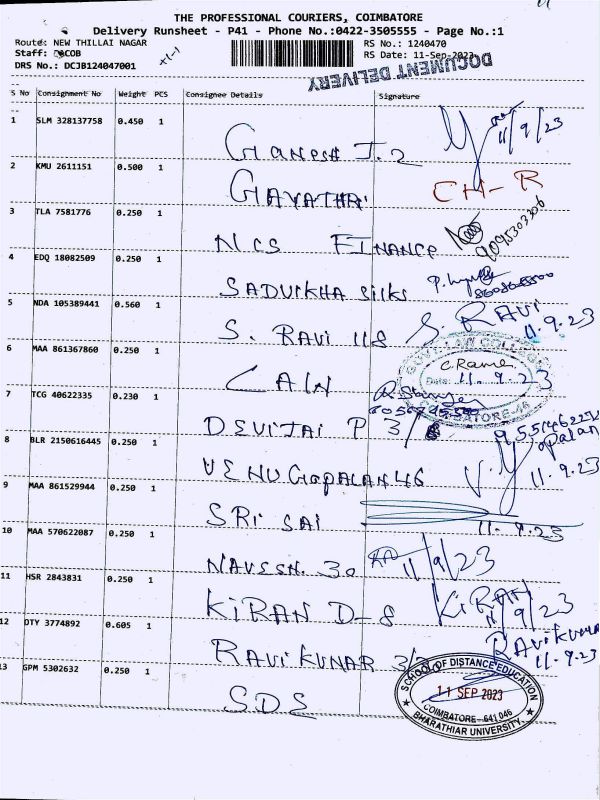 THE PROFESSIONAL COURIERS, COIMBATORE
Delivery Runsheet - P41 - Phone No.:0422-3505555 - Page No.:1
Route: NEW THILLAI NAGAR
RS No.: 1240470
Staff: JACOB
RS Date: 11-Sep-2023
DRS No.: DCJB124047001
DOCUMENT DELIVERY
S No Consignment No Weight PCS Consignee Details Signature
1 SLM 328137758 0.450 1
GANESH J.2 11/9/23
2 KMU 2611151 0.500 1
GAYATHRI CH-R
3 TLA 7581776 0.250 1
NCS FINANCE 9095303306
4 EDQ 18082509 0.250 1
SADVIKHA Silks
5 NDA 105389441 0.560 1
S. RAVI 118 S. RAVI 11.9.23
6 MAA 861367860 0.250 1
LAIN GOVT LAW COLLEGE Date: 11.9.23 COIMBATORE-46
7 TCG 40622335 0.230 1
DEVIJAI P 3/8
8 BLR 2150616445 0.250 1
VENUGOPALAN 46 11.9.23
9 MAA 861529944 0.250 1
SRI SAI 11.9.23
10 MAA 570622087 0.250 1
NAVESH. 30 11/9/23
11 HSR 2843831 0.250 1
KIRAN D-8 KIRAN 11/9/23
12 OTY 3774892 0.605 1
RAVIKUNAR RAVIKUMAR 11.9.23
13 GPM 5302632 0.250 1
SDS
SCHOOL OF DISTANCE EDUCATION
11 SEP 2023
COIMBATORE-641 046
BHARATHIAR UNIVERSITY,